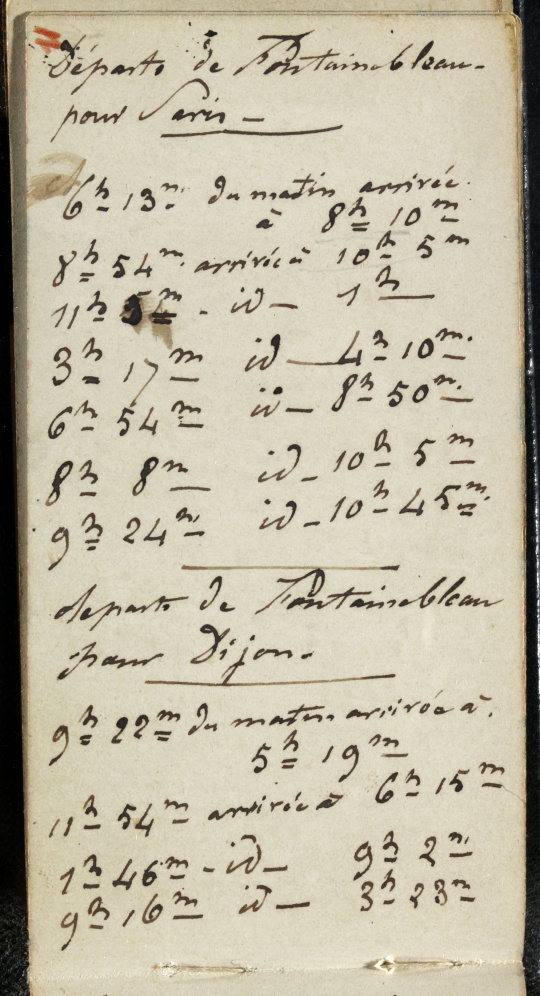 Départs de Fontainebleau -
pour Paris -
6h 13m du matin arrivée
à 8h 10m
8h 54m arrivée à 10h 5m
11h 54m - id - 1h
3h 17m id 4h 10m
6h 54m id - 8h 50m
8h 8m id - 10h 5m
9h 24m id - 10h 45m
departs de Fontainebleau
pour Dijon -
9h 22m du matin arrivée à
5h 19m
11h 54m arrivée à 6h 15m
1h 46m - id - 9h 2m
9h 16m id - 3h 23m